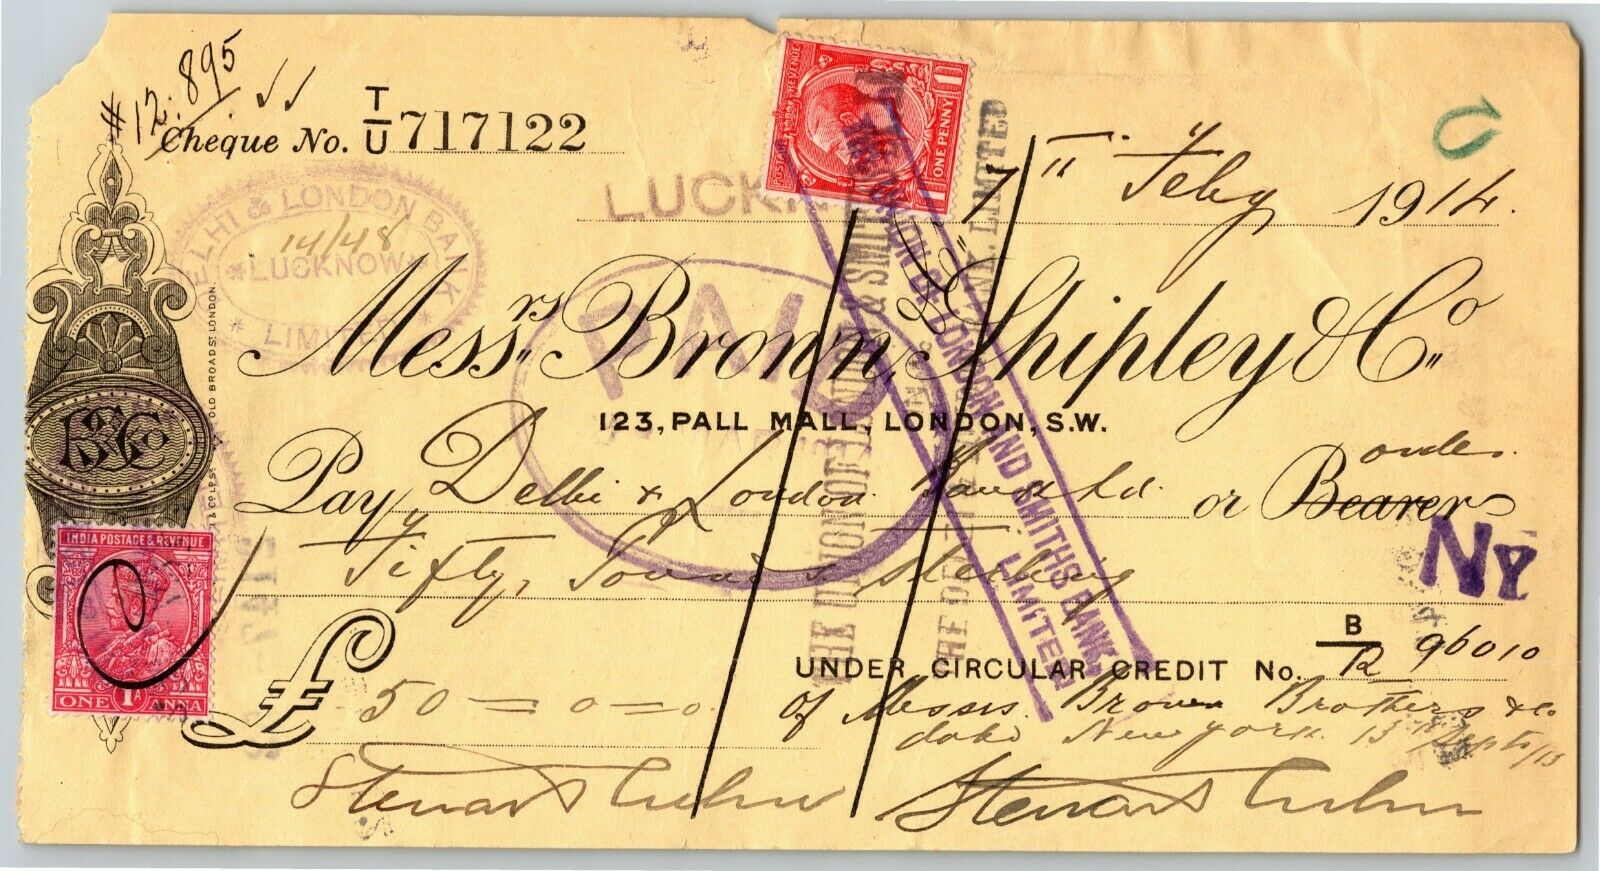 #12.895
Cheque No. T/U 717122
LUCKN
7th Feby 1914.
DELHI & LONDON BANK
14/48
*LUCKNOW*
* LIMITED *
Messrs Brown, Shipley & Co
123, PALL MALL, LONDON, S.W.
PAID
Pay Delhi & London Bank Ld. or Bearer order
Fifty Pounds Sterling
NY
UNDER CIRCULAR CREDIT No. B/12 96010
£ 50=0=0
of Messrs. Brown Brothers & Co
date New York 13 Sept/13
POSTAGE REVENUE
ONE PENNY
1
INDIA POSTAGE & REVENUE
ONE 1A ANNA
THE UNION OF LONDON & SMITHS BANK, LIMITED
UNION OF LONDON AND SMITHS BANK,
LIMITED
OLD BROAD ST LONDON.